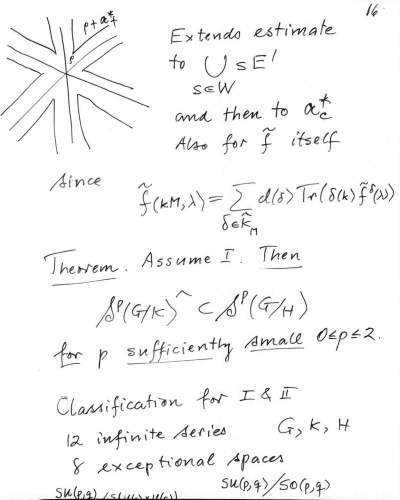 16
ρ + α*₊
ρ
Extends estimate
to ⋃ s E'
s∈W
and then to α*_c
Also for f̃ itself
Since
f̃(kM,λ) = ∑ d(δ) Tr(δ(k) f̃^δ(λ))
δ∈K̂_M
Theorem. Assume I. Then
𝒮^p(G/K)^ ⊂ 𝒮^p(G/H)
for p sufficiently small 0≤p≤2.
Classification for I & II
12 infinite series G, K, H
8 exceptional spaces
SU(p,q)/SO(p,q)